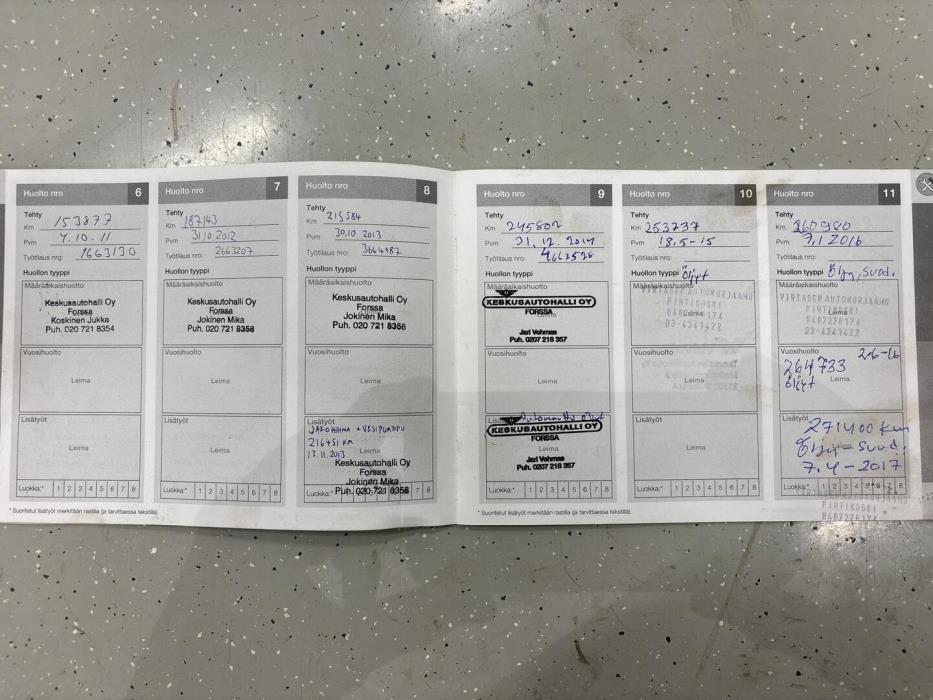 Huolto nro 6
Tehty
Km 153877
Pvm 4.10.11
Työtilaus nro: 1663130
Huollon tyyppi
Määräaikaishuolto
Keskusautohalli Oy
Forssa
Koskinen Jukka
Puh. 020 721 8354
Vuosihuolto
Leima
Lisätyöt
Leima
Luokka:* 1 2 3 4 5 6 7 8
* Suoritetut lisätyöt merkitään rastilla (ja tarvittaessa tekstillä).
Huolto nro 7
Tehty
Km 187143
Pvm 31.10.2012
Työtilaus nro: 2663207
Huollon tyyppi
Määräaikaishuolto
Keskusautohalli Oy
Forssa
Jokinen Mika
Puh. 020 721 8358
Vuosihuolto
Leima
Lisätyöt
Leima
Luokka:* 1 2 3 4 5 6 7 8
Huolto nro 8
Tehty
Km 215584
Pvm 30.10.2013
Työtilaus nro: 3664487
Huollon tyyppi
Määräaikaishuolto
Keskusautohalli Oy
Forssa
Jokinen Mika
Puh. 020 721 8358
Vuosihuolto
Leima
Lisätyöt
JAKOHIHNA + VESIPUMPPU
216451 KM
13.11.2013
Leima
Keskusautohalli Oy
Forssa
Jokinen Mika
Puh. 020 721 8358
Luokka:*
Huolto nro 9
Tehty
Km 245802
Pvm 31.12.2014
Työtilaus nro: 4663528
Huollon tyyppi
Määräaikaishuolto
KESKUSAUTOHALLI OY
FORSSA
Leima
Jari Vehmas
Puh. 0207 218 357
Vuosihuolto
Leima
Lisätyöt
KESKUSAUTOHALLI OY
FORSSA
Jari Vehmas
Puh. 0207 218 357
Luokka:* 1 2 3 4 5 6 7 8
* Suoritetut lisätyöt merkitään rastilla (ja tarvittaessa tekstillä).
Huolto nro 10
Tehty
Km 253737
Pvm 18.5-15
Työtilaus nro:
Huollon tyyppi Öljyt
Määräaikaishuolto
VIRTASEN AUTOKORJAAMO
PINTIKOSKI
03-4341422
Vuosihuolto
Leima
Lisätyöt
Leima
Luokka:* 1 2 3 4 5 6 7 8
Huolto nro 11
Tehty
Km 260980
Pvm 7.1 2016
Työtilaus nro:
Huollon tyyppi Öljy, Suod.
Määräaikaishuolto
VIRTASEN AUTOKORJAAMO
PINTIKOSKI
Leima
0407276174
03-4341422
Vuosihuolto
2-6-16
264733
Öljyt
Leima
Lisätyöt
271400 Km
Öljy-Suod.
Leima
7.4-2017
Luokka:* 1 2 3 4 5 6 7 8
PINTIKOSKI
0407276174